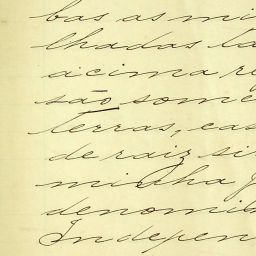 bas as mi
lhadas ta
acima re
são some
terras, cas
de raiz si
minha f
denomin
Indepen